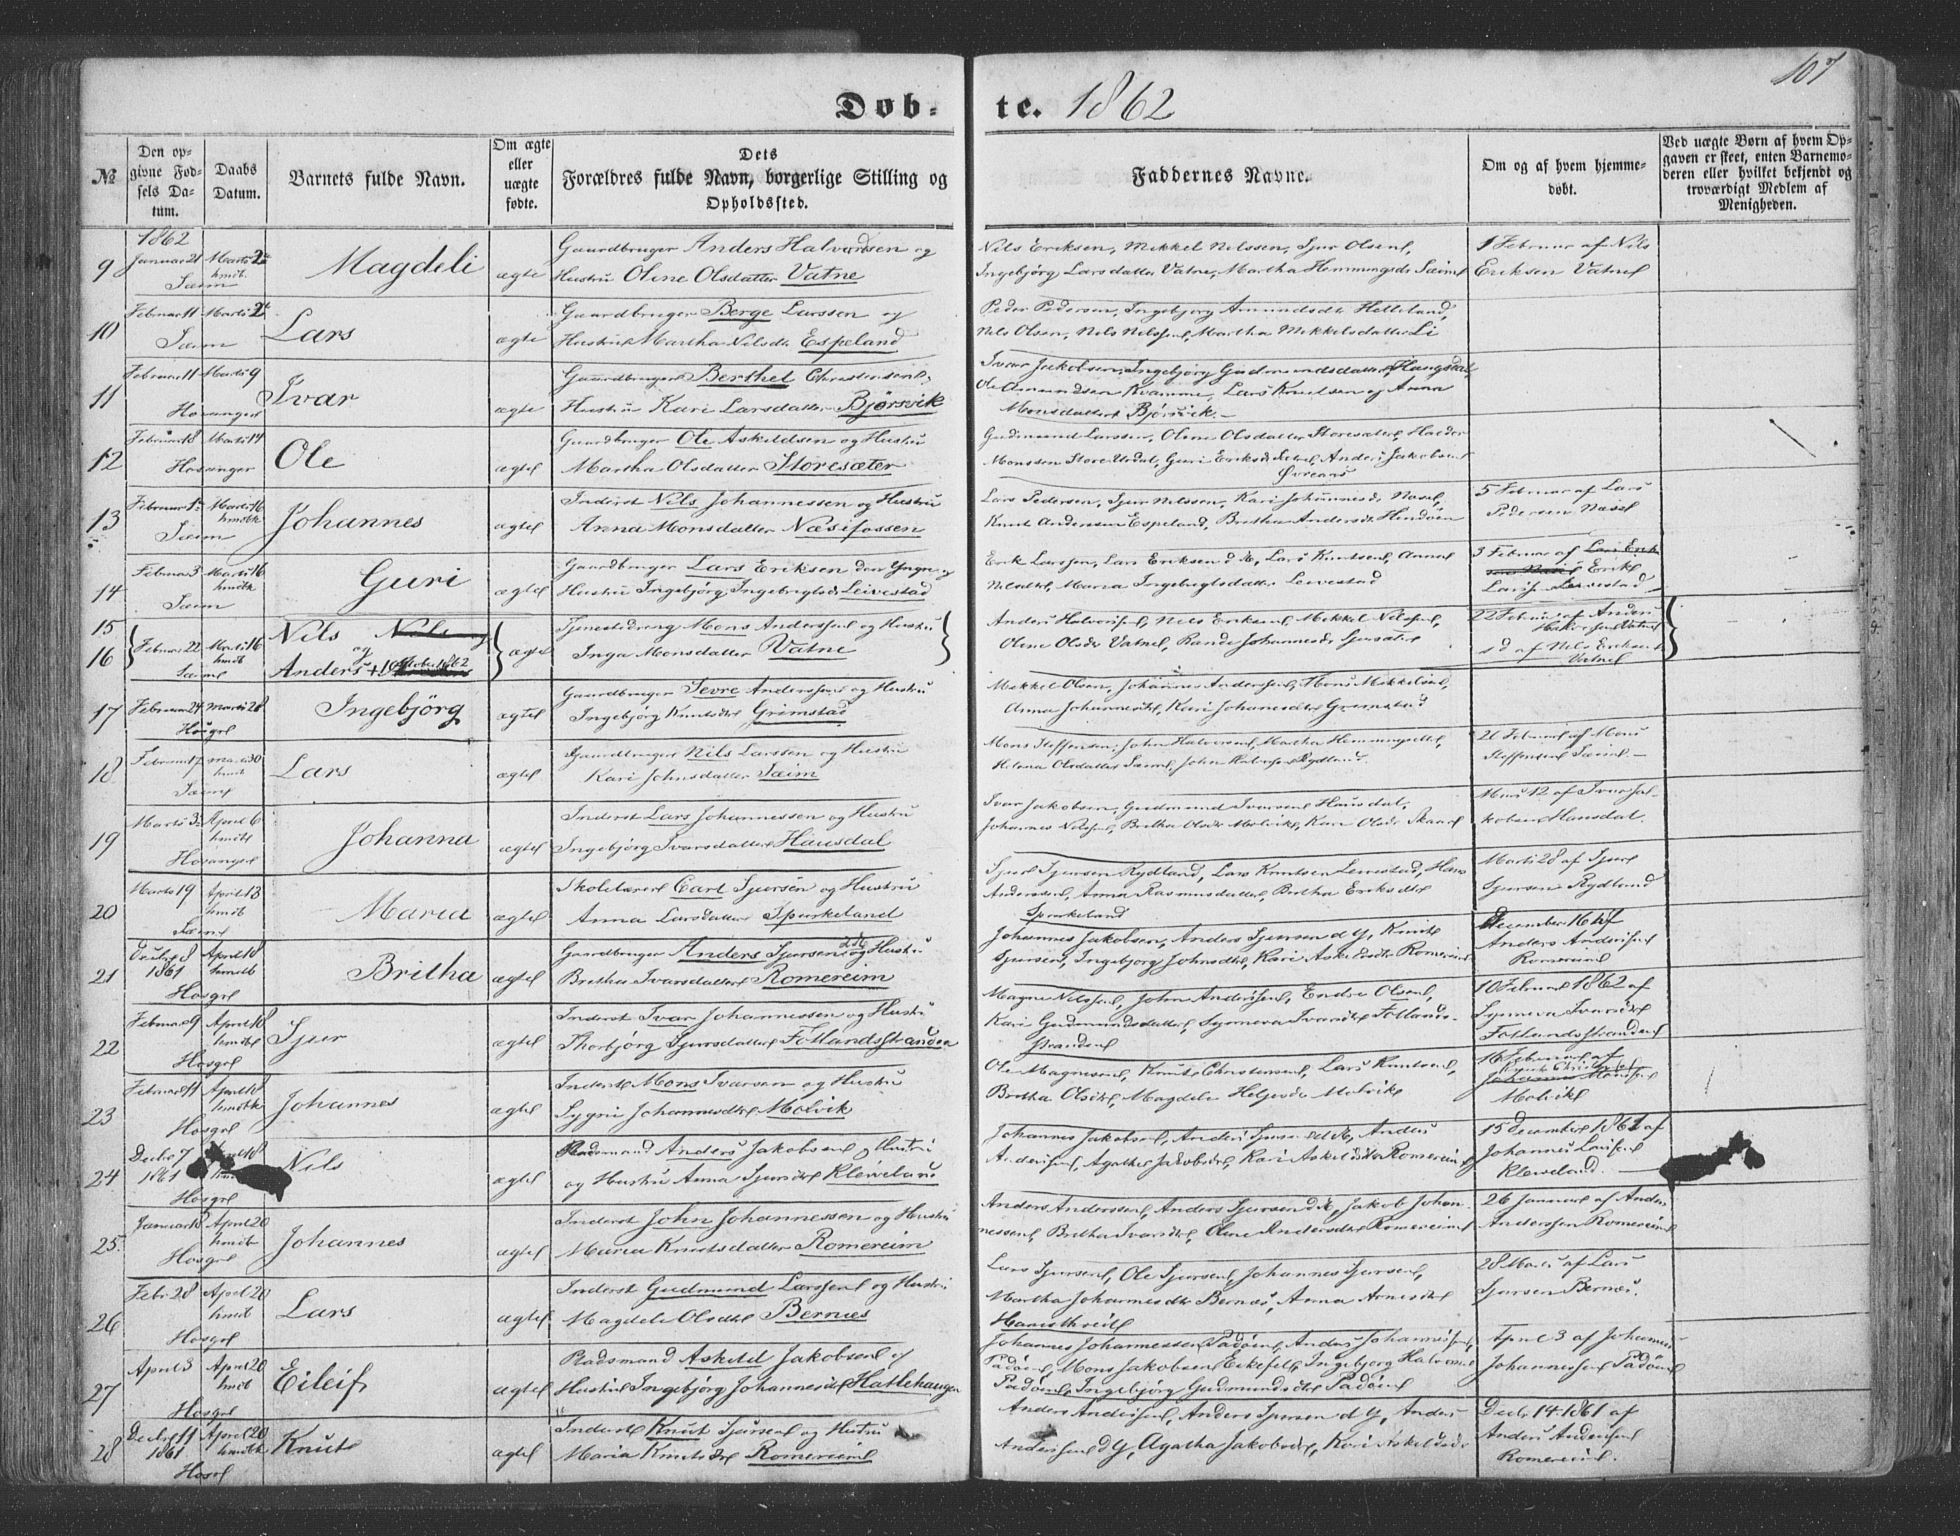 107
Døb-te. 1862
№
Den opgivne Fødsels Datum.
Daabs Datum.
Barnets fulde Navn.
Om ægte eller uægte fødte.
Dets Forældres fulde Navn, borgerlige Stilling og Opholdssted.
Faddernes Navne.
Om og af hvem hjemmedøbt.
Ved uægte Børn af hvem Opgaven er skeet, enten Barnemoderen eller hvilket bekjendt og troværdigt Medlem af Menigheden.
1862
9 Januar 21 Marts 2 hmdb. Sæim
Magdeli
ægte
Gaardbruger Anders Halvorsen og
Hustru Olene Olsdatter Vatne
Nils Eriksen, Mikkel Nilssen, Sjur Olsen,
Ingebjörg Larsdatter Vatne, Martha Hemmingsdr Sæim
1 Februar af Nils
Eriksen Vatne
10 Februar 11 Marts 2 Sæim
Lars
ægte
Gaardbruger Berge Larssen og
Hustru Martha Nilsdr Espeland
Peder Pedersen, Ingebjörg Amundsdr Helleland,
Nils Olsen, Nils Nilssen, Martha Mikkelsdatter Li
11 Februar 11 Marts 9 Hosanger
Ivar
ægte
Gaardbruger Berthel Christensen,
Hustru Kari Larsdatter Björsvik
Ivar Jakobsen, Ingebjörg Gudmundsdatter
Ole Amundsen Kvamme, Lars Knudsen og Anna
Monsdatter Björsvik.
12 Februar 8 Marts 14 Hosanger
Ole
ægte
Gaardbruger Ole Askeldsen og Hustru
Martha Olsdatter Storesæter
Gudmund Larssen, Olene Olsdatter Storesæter,
Monssen Store Urdal, Guri Eriksdr Anders Jakobsen
13 Februar Marts 16 hmdbt Sæim
Johannes
ægte
Inderst Nils Johannessen og Hustru
Anna Monsdatter Næsifossen
Lars Pedersen, Sjur Nilssen, Kari Johannesdr
Knut Andersen Espeland, Britha Andersdr
5 Februar af Lars
Pedersen
14 Februar 3 Marts 16 hmdbt Sæim
Guri
ægte
Gaardbruger Lars Eriksen den Yngre og
Hustru Ingebjörg Ingebrigtsdr Leivestad
Erik Larssen, Lars Eriksen d Æ, Lars Knutsen, Anna
Nilsdtr, Maria Ingebrigtsdatter Leivestad
3 Februar af
Erik
Larss. Leivestad
15
16 Februar 22 Marts 16 hmdbt Sæim
Nils og
Anders
ægte
Tjenestedreng Mons Anderssen og Hustru
Inga Monsdatter Vatne
Anders Halvorsen, Nils Eriksen, Mikkel Nilssen,
Olene Olsdr Vatne, Rande Johannesdr
22 Februar af Anders
Halvorsen Vatne
s d af Nils Eriksen
Vatne
17 Februar 24 Marts 28 Hosgr
Ingebjörg
ægte
Gaardbruger Sevre Anderssen og Hustru
Ingebjörg Knutsdtr Grimstad
Mikkel Olsen, Johannes Anderssen, Mons Mikkelsen,
Anna Johannesdtr, Kari Johannesdtr Grimstad
18 Februar 17 Marts 30 hmdbt Sæim
Lars
ægte
Gaardbruger Nils Larssen og Hustru
Kari Johnsdatter Sæim
Mons Steffensen, John Halvorsen, Martha Hemmingsdtr,
Helena Olsdatter Sæim, John Rydland
20 Februar af Mons
Steffensen Sæim
19 Marts 3 April 6 hmdbt Hosanger
Johanna
ægte
Inderst Lars Johannessen og Hustru
Ingebjörg Ivarsdatter Hausdal
Ivar Jakobsen, Gudmund Ivarsen Hausdal,
Johannes Nilssen, Britha Olsdr Molvik, Kari Olsdr Skaar
Marts 12 af Ivar Ja-
kobsen Hausdal.
20 Marts 19 April 13 hmdb Sæim
Maria
ægte
Skolelærer Carl Sjursen og Hustru
Anna Larsdatter Spurkeland
Sjur Sjursen Rydland, Lars Knutsen Leivestad, Hans
Anderssen, Anna Rasmusdatter, Bertha Eriksdtr
Spurkeland
Marts 28 af Sjur
Sjursen Rydland
21 Decbr 8 1861 April 18 hmdb Hosgr
Britha
ægte
Gaardbruger Anders Sjursen og Hustru
Britha Ivarsdatter Romereim
Johannes Jakobsen, Anders Sjursen d Y, Knut
Sjursen, Ingebjörg Johnsdtr, Kari Askeldsdr Romereim
December 16 af
Anders Anderssen
Romereim
22 Februar 9 April 18 hmdbt Hosgr
Sjur
ægte
Inderst Ivar Johannessen og Hustru
Thorbjörg Sjursdatter Fotlandsstranden
Magne Nilssen, John Anderssen, Endre Olsen,
Kari Gudmundsdatter, Synneva Ivarsdtr Fotlands-
stranden
10 Februar 1862 af
Synneva Ivarsdtr
Fotlandsstranden
23 Februar 11 April 18 hmdbt Hosgr
Johannes
ægte
Inderst Mons Ivarsen og Hustru
Sygni Johannesdtr Molvik
Ole Magnesen, Knut Christensen, Lars Knutsen,
Britha Olsdtr, Magdele Helgesdr Molvik
16 Februar af
Molvik
24 Decbr 7 1861 Hosgr
Nils
ægte
Anders Jakobsen
og Hustru Anna Sjursdtr Kleiveland
Johannes Jakobsen, Anders Sjursen d Æ, Anders
Anderssen, Agatha Jakobsdtr, Kari Askeldsdtr Romereim
15 December 1861 af
Johannes Larssen
Kleiveland.
25 Januar 18 April 20 hmdb Hosgr
Johannes
ægte
Inderst John Johannessen og Hustru
Maria Knutsdatter Romereim
Anders Anderssen, Anders Sjursen d Æ, Jakob Johan-
nessen, Britha Ivarsdtr, Olene Andersdtr Romereim
26 Januar af Anders
Anderssen Romereim
26 Febr 28 April 20 hmdb Hosgr
Lars
ægte
Inderst Gudmund Larssen og Hustru
Magdele Olsdtr Bernæs
Lars Sjursen, Ole Sjursen, Johannes Sjursen,
Martha Johannesdtr Bernæs, Anna Arnesdtr
28 Marts af Lars
Sjursen Bernæs.
27 April 3 April 20 hmdb Hosgr
Eileif
ægte
Pladsmand Askild Jakobsen og
Hustru Ingebjörg Johannesdtr Hatlehaugen
Johannes Johannessen Padöen, Anders Johannessen
Padöen, Mons Jakobsen Eikefet, Ingebjörg Halvorsdr
Padöen, Ingebjörg Gudmundsdtr Padöen
April 3 af Johannes
Johannessen Padöen
28 Decbr 11 1861 April 20 hmdbt Hosgr
Knut
ægte
Inderst Knut Sjursen og Hustru
Maria Knutsdtr Romereim
Anders Anderssen, Anders Sjursen d Y, Anders
Anderssen d Y, Agatha Jakobsdtr, Kari Askeldsdr
Decbr 14 1861 af
Anders Anderssen
Romereim.